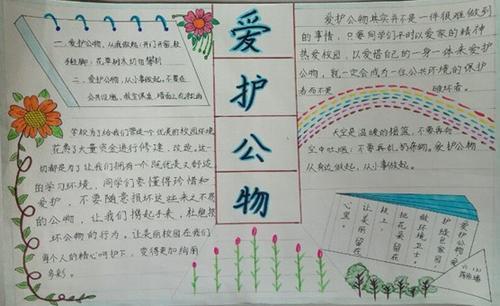 爱护公物
一、爱护公物,从我做起:开门开窗,要
轻轻脚:花草树木切勿攀折
二、爱护公物,从小事做起,不要在
公共设施、教室课桌、墙面上乱涂乱画
学校为了给我们营造一个优美的校园环境
花费了大量资金进行修建,改造,这一
切都是为了让我们拥有一个既优美又舒适
的学习环境,同学们要懂得珍惜和
爱护,不要随意损坏这些来之不易
的公物,让我们携起手来,杜绝损
坏公物的行为,让美丽校园在我们
每个人的精心呵护下,变得更加绚丽
多彩。
爱护公物其实并不是一件很难做到
的事情,只要同学们平时以爱家的精神
热爱校园,以爱惜自己的一身一体来爱护
公物,就一定会成为一位公共环境的保护
者而不是破坏者。
天空是温暖的摇篮,不要再向
空中吐烟,不要再乱扔杂物。爱护公物
从身边做起,从小事做起。
爱护公物,爱
护绿色家园,
做环境卫士,
把花朵留在
枝上,
让美丽留在
心里。